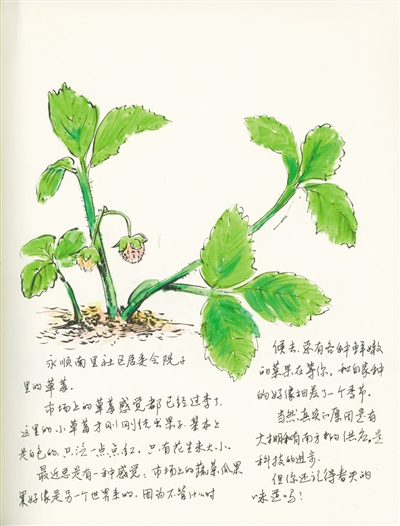 永顺南里社区居委会院子
里的草莓。
市场上的草莓感觉都已经过季了,
这里的小草莓才刚刚结出果子,基本上
是白色的,只泛一点点红,只有花生米大小。
最近总是有一种感觉,市场上的蔬菜瓜果
果好像是另一个世界来的,因为不管什么时
候去,总有各种鲜嫩
的菜果在等你,和自家种
的好像相差了一个季节。
当然真实的原因是有
大棚和有南方的供应,是
科技的进步。
但你还记得春天的
味道吗?